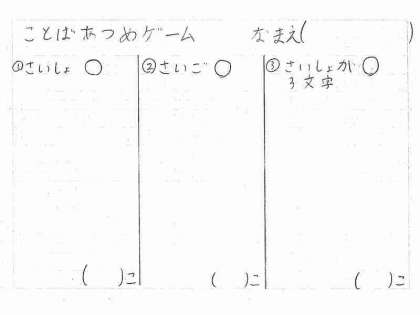 ことばあつめゲーム なまえ( )
①さいしょ ○
②さいご ○
③さいしょが ○
3文字
( )こ
( )こ
( )こ